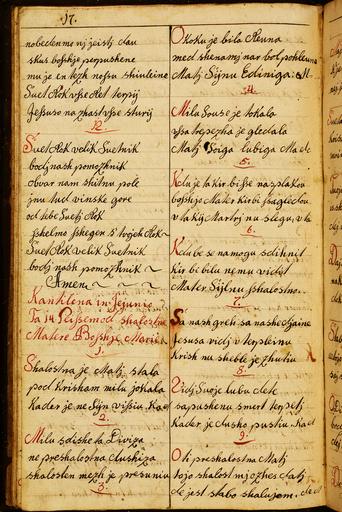 17.
nobeden ne nj zeistj dau
skus boshje perpushene
mu je in tezh nossu shiuleine
Suet Rok vsse Rat terpij
Jessusa na zhast vsse sturij
12.
Suet Rok velik Suetnik
bodj nash pomozhnik
obvar nam shitnu pole
jnu tud vinske gore
od tebe Suetj Rok
Suet Rok velik Suetnik
bodj nash pomozhnik
Amen
Kantilena in Jejunio
Ta 14 Peissem od shalostne
Matere Boshje Marie
1.
Shalostna je Matj stala
pod krisham milu jokala
Kader je ne Sijn vissiu. Kad
2.
Milu sdiske ta Diviza
ne preshalostna dushiza
shalosten mezh je presuniu
3.
O koku je bila Reuna
med shenamj nar bol pohleuna
Matj Sijnu Ediniga. M
4.
Mila Souse je tokala
vssa trepezha je gledala
Matj Soiga lubiga Ma etc
5.
Kdu je ta kir bisse na plakou
boshje Mater kir bi ssagledou
v ta kij Martoj nu slegu, v ta
6.
Kdu be se na mogu sdihnit
kir bi bilu nemu viditj
Mater Sijnu shalostno.
7.
Sa nash grehi sa nashe djaine
Jesusa vidj v terpleinu
Krish nu shible je zhutiu
8.
Vidj Suoje lubu dete
sapushenu smert terpetj
Kader je dusho pustiu. Kad
9.
O ti preshalostna Matj
tojo shalost mj ozhes datj
de jest stabo shalujem. de et